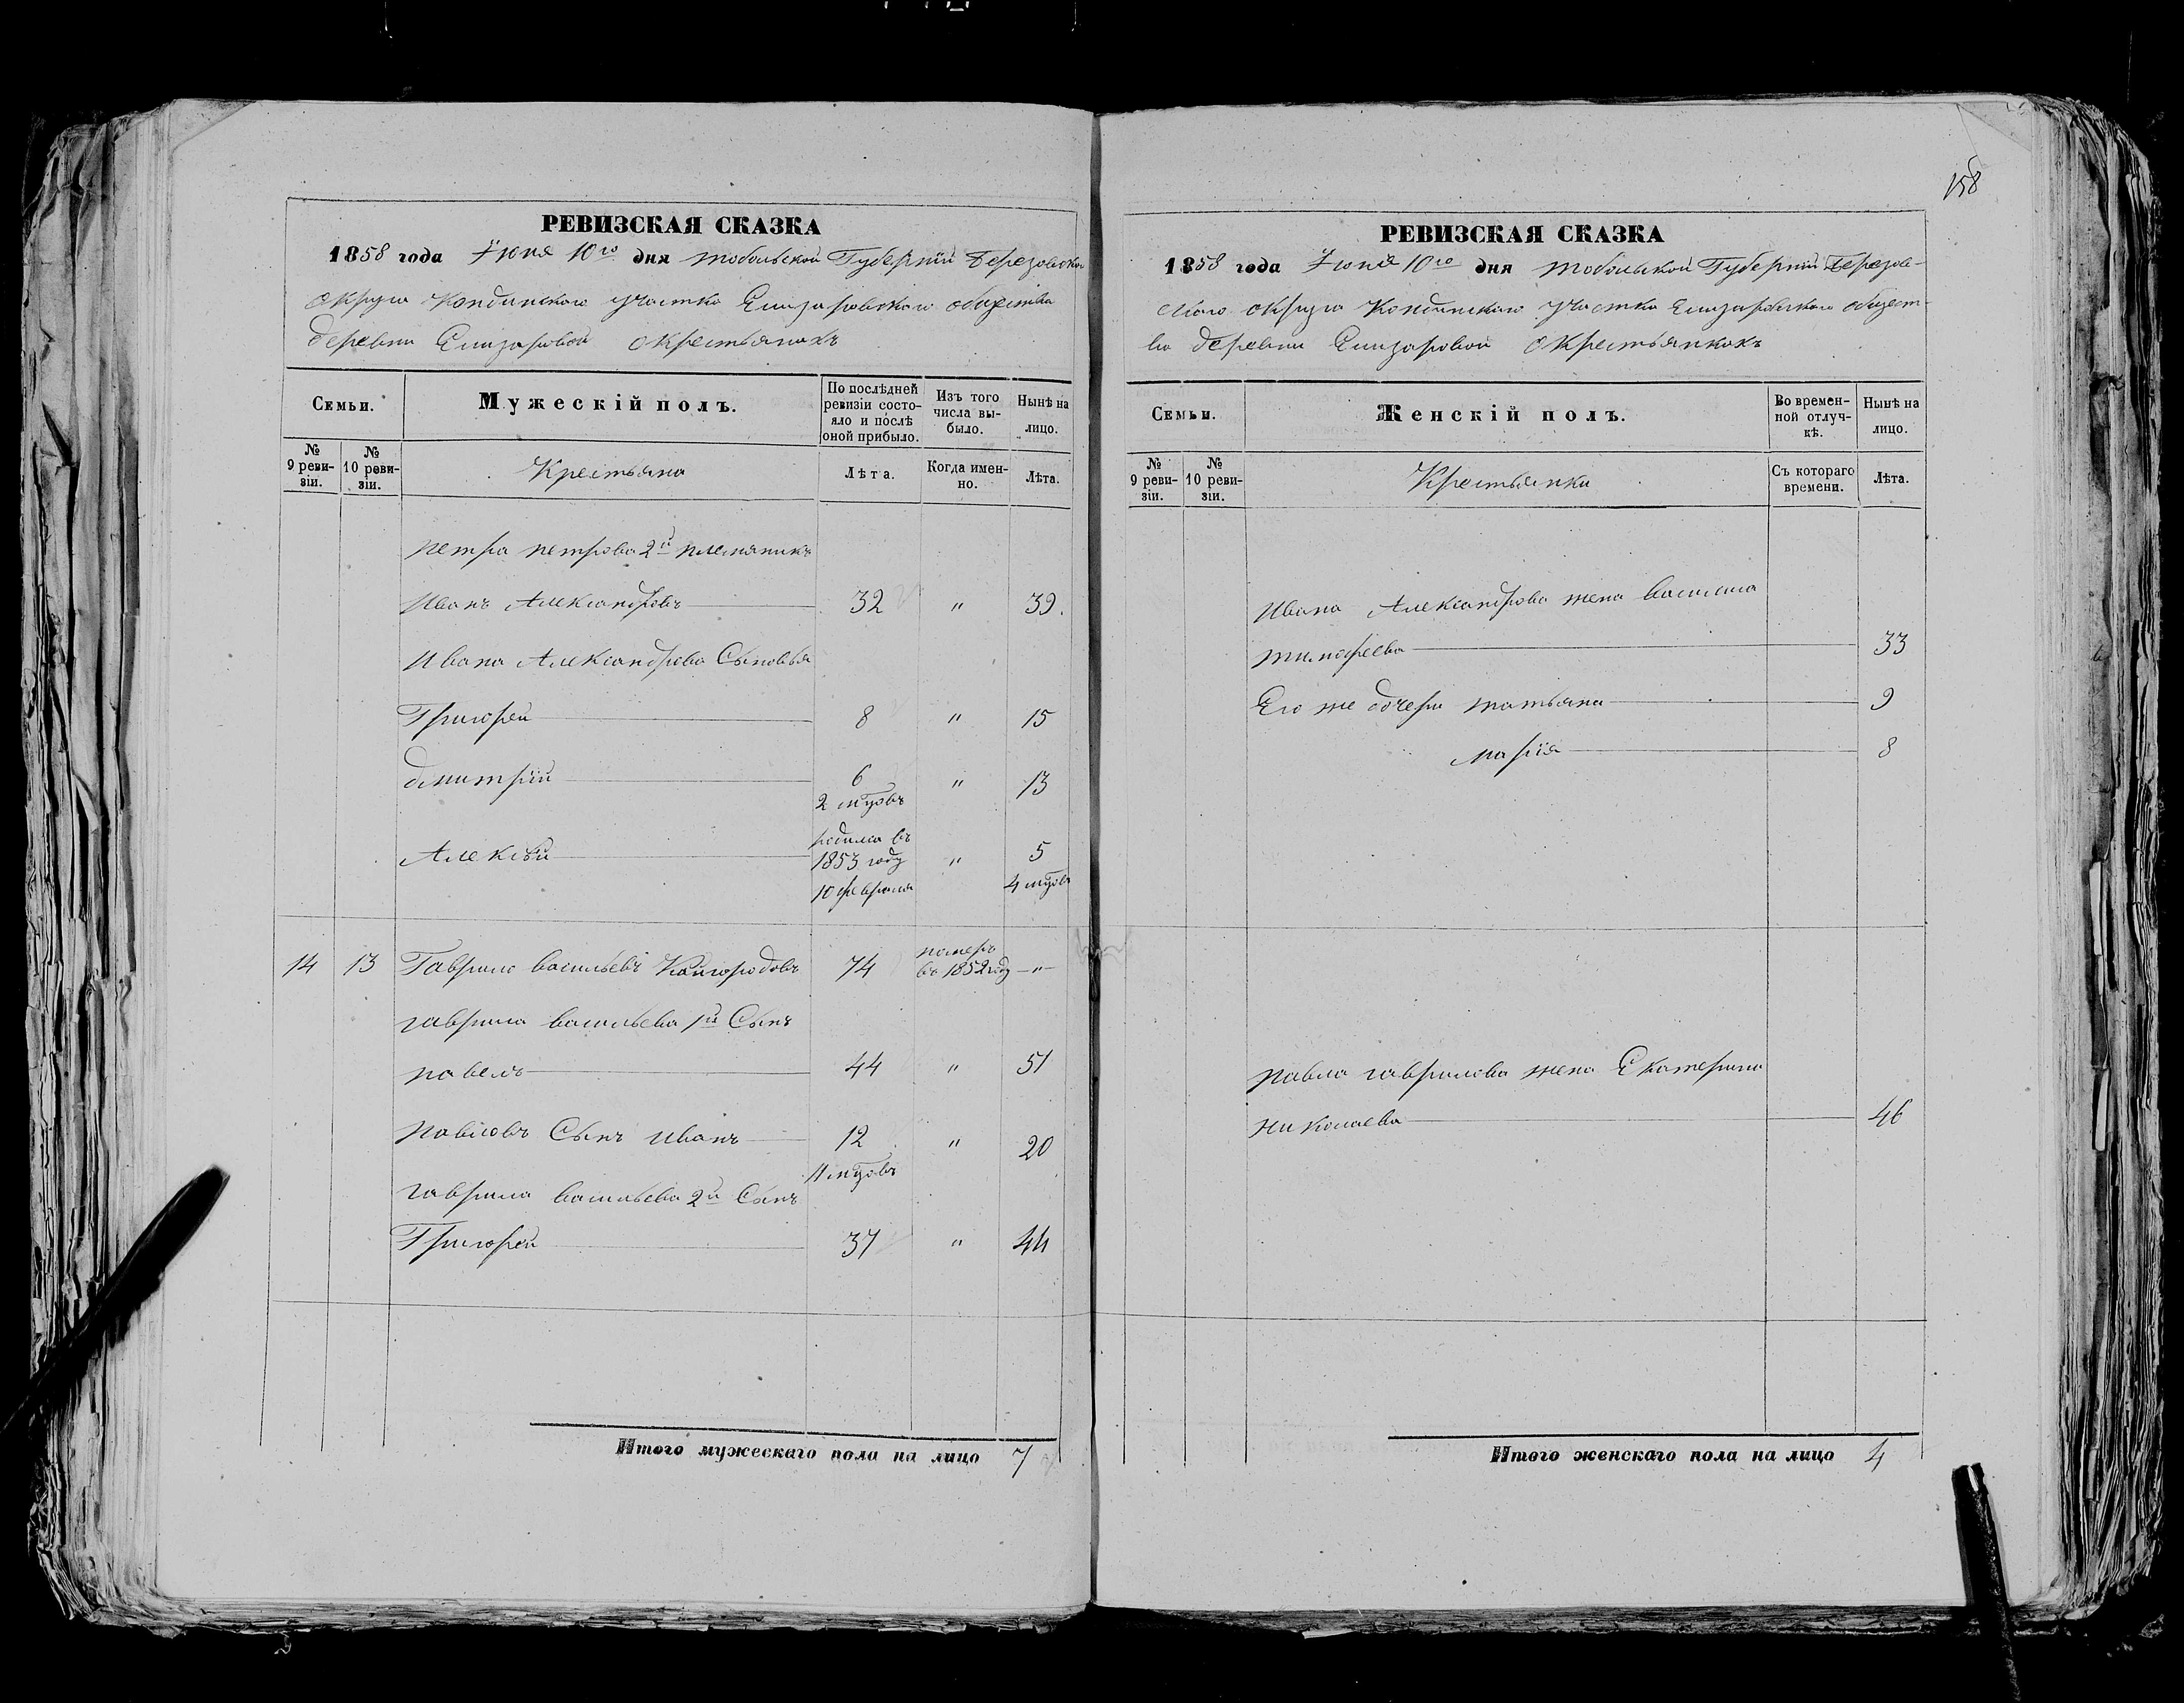 158
РЕВИЗСКАЯ СКАЗКА
1858 года Іюня 10го дня Тобольской Губерніи Березовскаго
округа Кондинскаго участка Елизаровскаго общества
деревни Елизаровой о крестьянахъ
Семьи.
Мужескій полъ.
По послѣдней ревизіи состояло и послѣ оной прибыло.
Изъ того числа выбыло.
Нынѣ на лицо.
№ 9 ревизіи.
№ 10 ревизіи.
Крестьяна
Лѣта.
Когда именно.
Лѣта.
Петра Петрова 2й племянникъ
Иванъ Александровъ 32 " 39.
Ивана Александрова Сыновья
Григорей 8 " 15
Дмитрій 6 2 мцовъ " 13
Алексѣй родился въ 1853 году 10 февраля " 5 4 мцов
14 13 Гаврило Васильевъ Кайгородовъ 74 померъ въ 1852 году —"—
Гаврила Васильева 1й Сынъ
Павелъ 44 " 51
Павловъ Сынъ Иванъ 12 11 мцовъ " 20
Гаврила Васильева 2й Сынъ
Григорей 37 " 44
Итого мужескаго пола на лицо 7
РЕВИЗСКАЯ СКАЗКА
1858 года Іюня 10го дня Тобольской Губерніи Березов-
скаго округа Кондинскаго участка Елизаровскаго общест-
ва деревни Елизаровой о крестьянкахъ
Семьи.
Женскій полъ.
Во временной отлучкѣ.
Нынѣ на лицо.
№ 9 ревизіи.
№ 10 ревизіи.
Крестьянки
Съ котораго времени.
Лѣта.
Ивана Александрова жена Васильса
Тимофеева 33
Его же дочери Татьяна 9
Марія 8
Павла Гаврилова жена Екатерина
Николаева 46
Итого женскаго пола на лицо 4